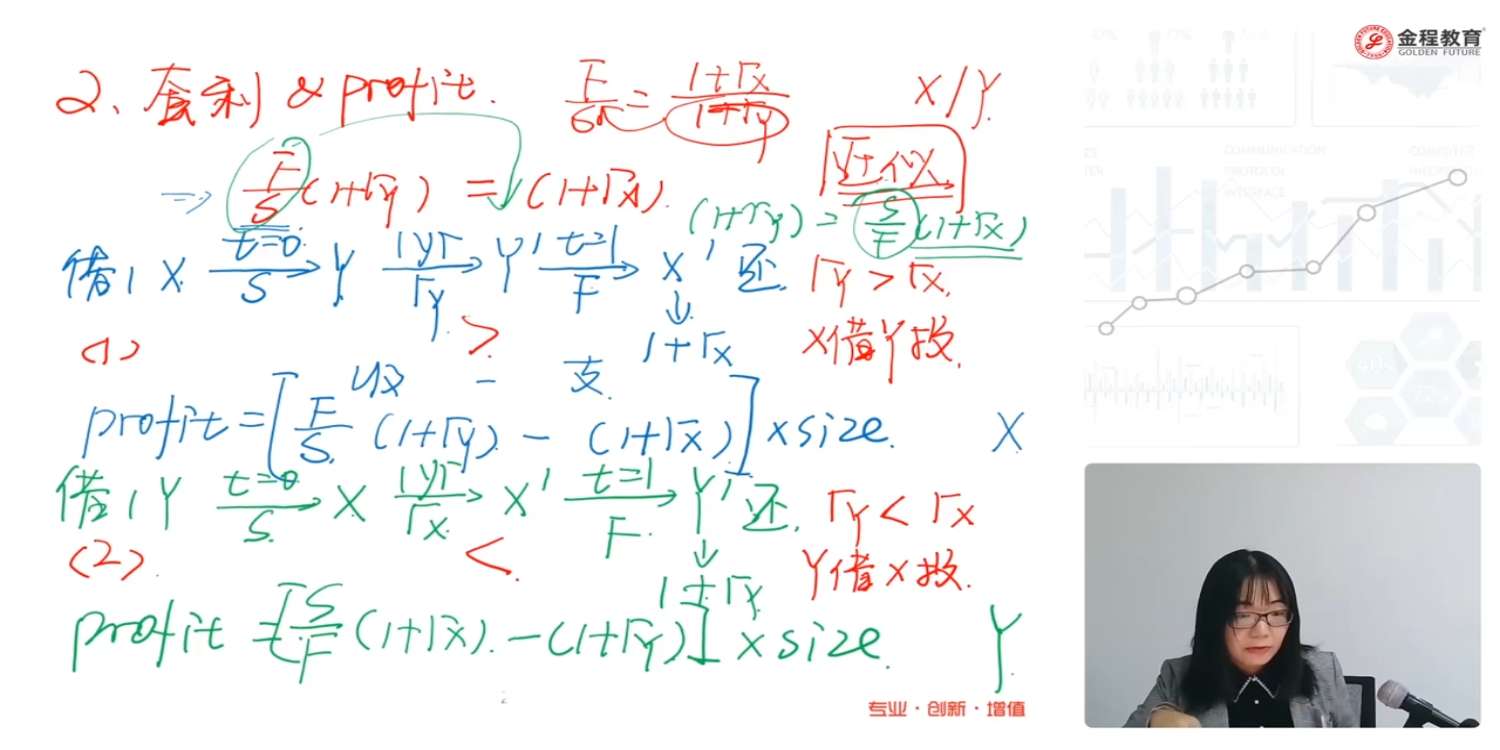 金程教育
GOLDEN FUTURE
2、套利 & profit. F/S = (1+rx)/(1+ry) X/Y
=> F/S (1+ry) = (1+rx). 近似
(1+ry) = S/F (1+rx)
借1 X t=0 S Y 1yr ry Y' t=1 F X' 还. ry > rx.
(1) > ↓ 1+rx X借Y投.
收 - 支
profit = [F/S (1+ry) - (1+rx)] x size. X
借1 Y t=0 S X 1yr rx X' t=1 F Y' 还. ry < rx
(2) < ↓ 1+ry Y借X投.
profit = [S/F (1+rx) - (1+ry)] x size. Y
2
专业·创新·增值